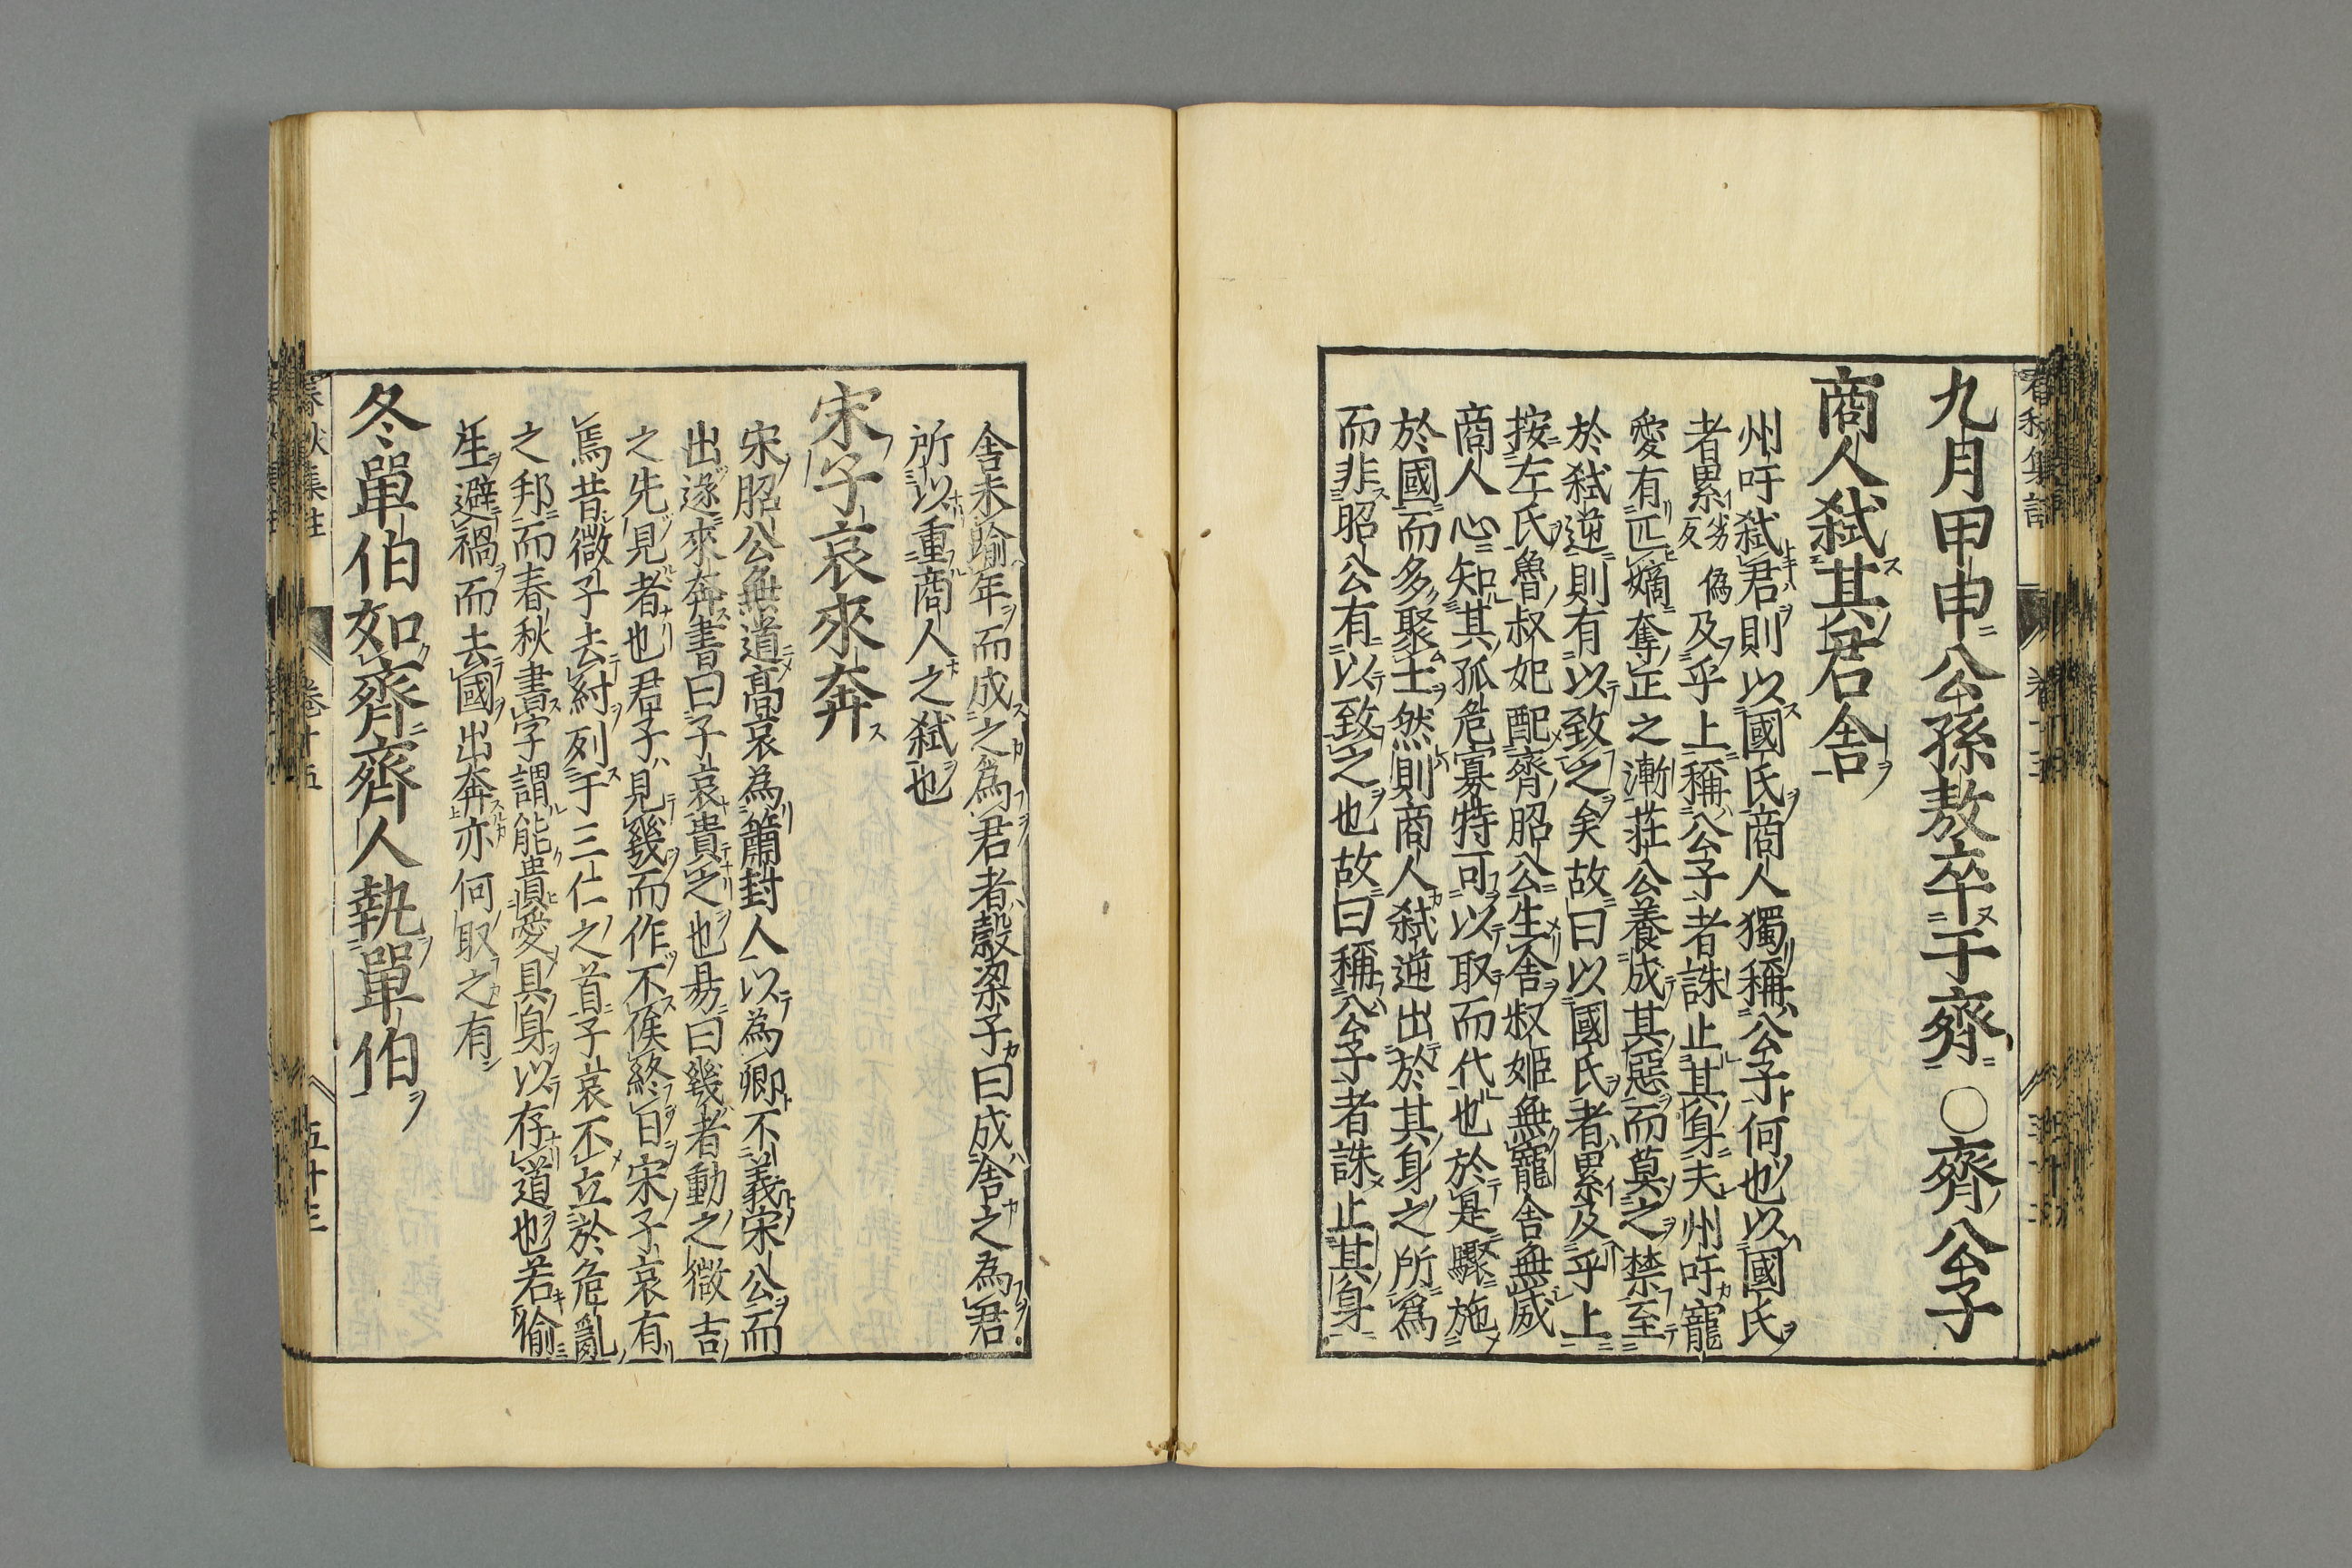 九月甲申公孫敖卒于齊○齊公子
商人弒其君舎
州吁弒君則以國氏商人獨稱公子何也以國氏
者累劣偽反及乎上稱公子者誅止其身夫州吁寵
愛有匹嫡奪正之漸莊公養成其惡而莫之禁至
於弒逆則有以致之矣故曰以國氏者累及乎上
按左氏魯叔妃配齊昭公生舎叔姬無寵舎無威
商人心知其孤危寡特可以取而代也於是驟施
於國而多聚士然則商人弒逆出於其身之所爲
而非昭公有以致之也故曰稱公子者誅止其身
舎未踰年而成之為君者穀梁子曰成舎之為君
所以重商人之弒也
宋子哀來奔
宋昭公無道髙哀為蕭封人以為卿不義宋公而
出遂來奔書曰子哀貴之也易曰幾者動之微吉
之先見者也君子見幾而作不俟終日宋子哀有
焉昔微子去紂列于三仁之首子哀不立於危亂
之邦而春秋書字謂能貴愛其身以存道也若偷
生避禍而去國出奔亦何取之有
冬單伯如齊齊人執單伯
春秋集註
卷十五
五十三